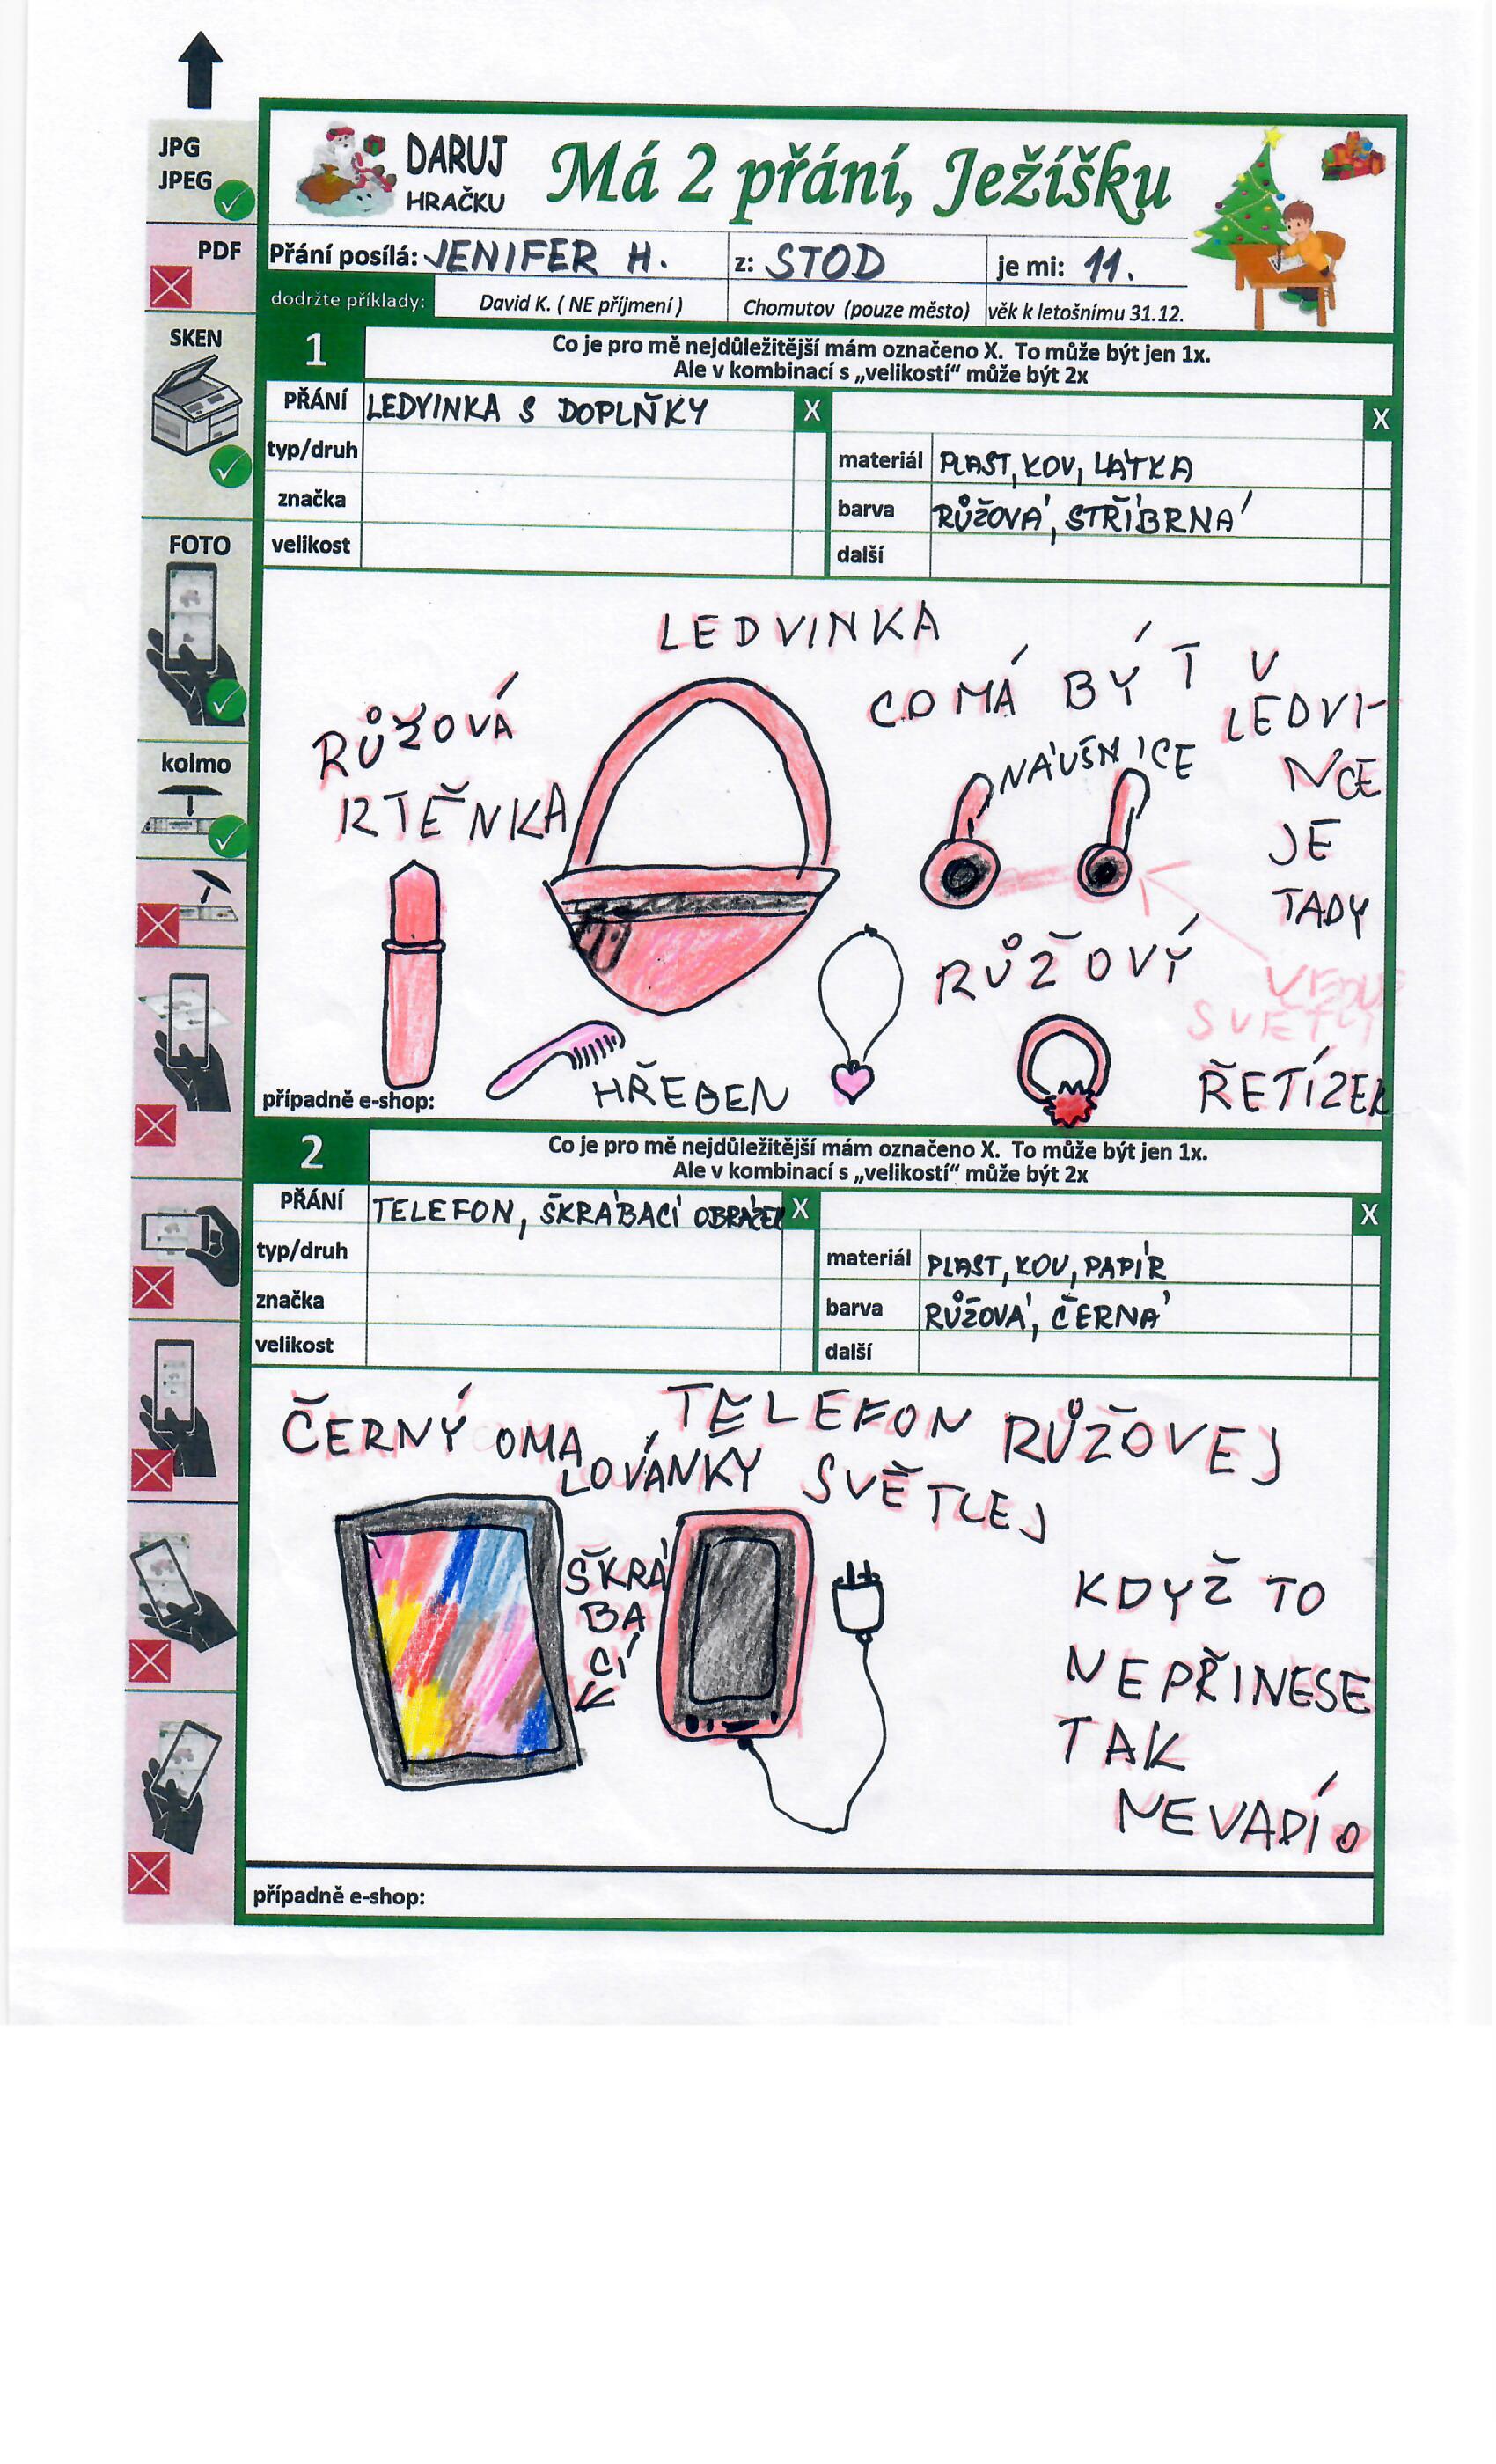 JPG
JPEG
PDF
SKEN
FOTO
kolmo
DARUJ
HRAČKU
Má 2 přání, Ježíšku
Přání posílá: JENIFER H. z: STOD je mi: 11.
dodržte příklady: David K. ( NE příjmení ) Chomutov (pouze město) věk k letošnímu 31.12.
1
Co je pro mě nejdůležitější mám označeno X. To může být jen 1x.
Ale v kombinací s „velikostí“ může být 2x
PŘÁNÍ LEDVINKA S DOPLŇKY X X
typ/druh materiál PLAST, KOV, LÁTKA
značka barva RŮŽOVÁ, STŘÍBRNÁ
velikost další
LEDVINKA
CO MÁ BÝT V
LEDVI-
NCE
JE
TADY
RŮŽOVÁ
RTĚNKA
NÁUŠNICE
RŮŽOVÝ
SVĚTLÍ
HŘEBEN
ŘETÍZEK
případně e-shop:
2
Co je pro mě nejdůležitější mám označeno X. To může být jen 1x.
Ale v kombinací s „velikostí“ může být 2x
PŘÁNÍ TELEFON, ŠKRÁBACÍ OBRÁZEK X X
typ/druh materiál PLAST, KOV, PAPÍR
značka barva RŮŽOVÁ, ČERNÁ
velikost další
ČERNÝ OMA
LOVÁNKY
TELEFON RŮŽOVEJ
SVĚTLEJ
ŠKRÁ
BA
CÍ
KDYŽ TO
NEPŘINESE
TAK
NEVADÍ.
případně e-shop: